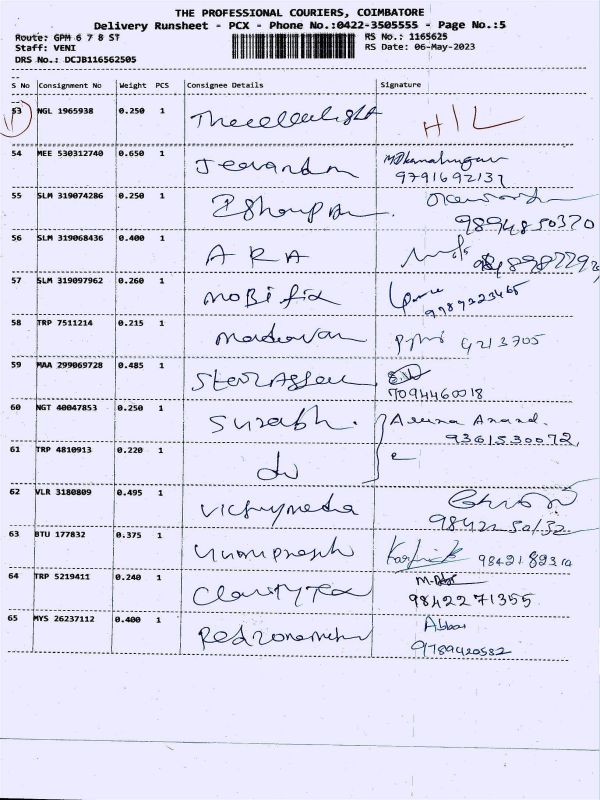 THE PROFESSIONAL COURIERS, COIMBATORE
Delivery Runsheet - PCX - Phone No.:0422-3505555 - Page No.:5
Route: GPM 6 7 8 ST RS No.: 1165625
Staff: VENI RS Date: 06-May-2023
DRS No.: DCJB116562505
S No Consignment No Weight PCS Consignee Details Signature
53 NGL 1965938 0.250 1 H/L
54 MEE 530312740 0.650 1 Jeevandan
9791692137
55 SLM 319074286 0.250 1
9894850370
56 SLM 319068436 0.400 1 ARA
57 SLM 319097962 0.260 1 Mobifix
58 TRP 7511214 0.215 1 Madhavan 4213705
59 MAA 299069728 0.485 1
7094460018
60 NGT 40047853 0.250 1 Surabh. Aruna Anand.
9361530072,
61 TRP 4810913 0.220 1 do
62 VLR 3180809 0.495 1 Vichymedia
63 BTU 177832 0.375 1 Karthik
64 TRP 5219411 0.240 1
9842271355
65 MYS 26237112 0.400 1 Abbas
9789420582